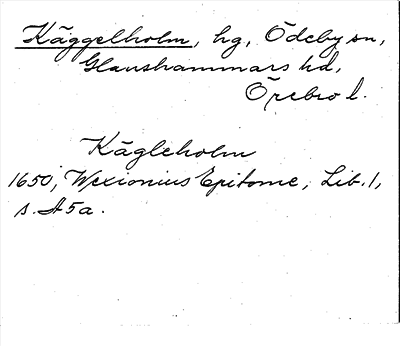 Käggelholm, hg, Ödeby sn,
Glanshammars hd,
Örebro l.
Kägleholm
1650, Wexionius Epitome, Lib. 1,
s. A5a.